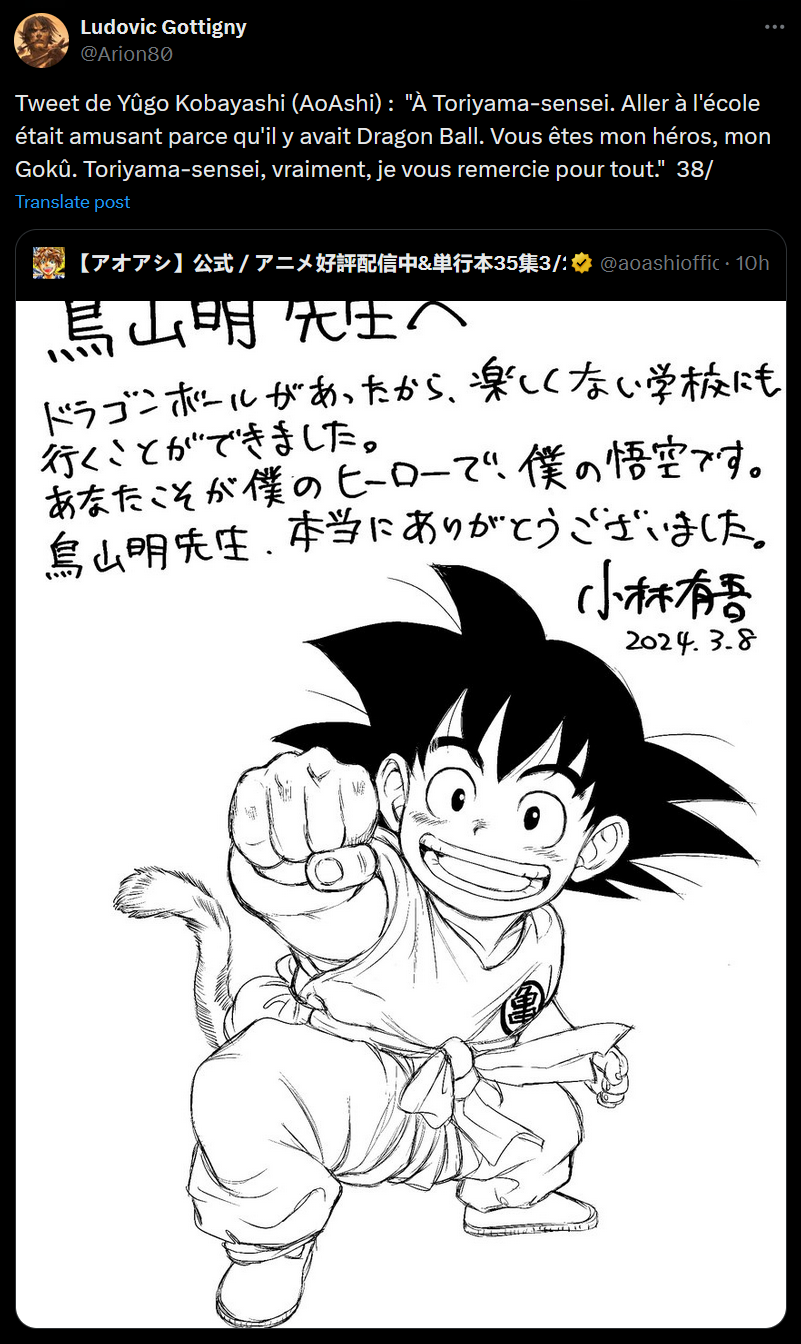 Ludovic Gottigny
@Arion80
Tweet de Yûgo Kobayashi (AoAshi) : "À Toriyama-sensei. Aller à l'école
était amusant parce qu'il y avait Dragon Ball. Vous êtes mon héros, mon
Gokû. Toriyama-sensei, vraiment, je vous remercie pour tout." 38/
Translate post
【アオアシ】公式 / アニメ好評配信中&単行本35集3/ @aoashioffic · 10h
鳥山明 先生へ
ドラゴンボールがあったから、楽しくない学校にも
行くことができました。
あなたこそが僕のヒーローで、僕の悟空です。
鳥山明先生、本当にありがとうございました。
小林有吾
2024.3.8
亀